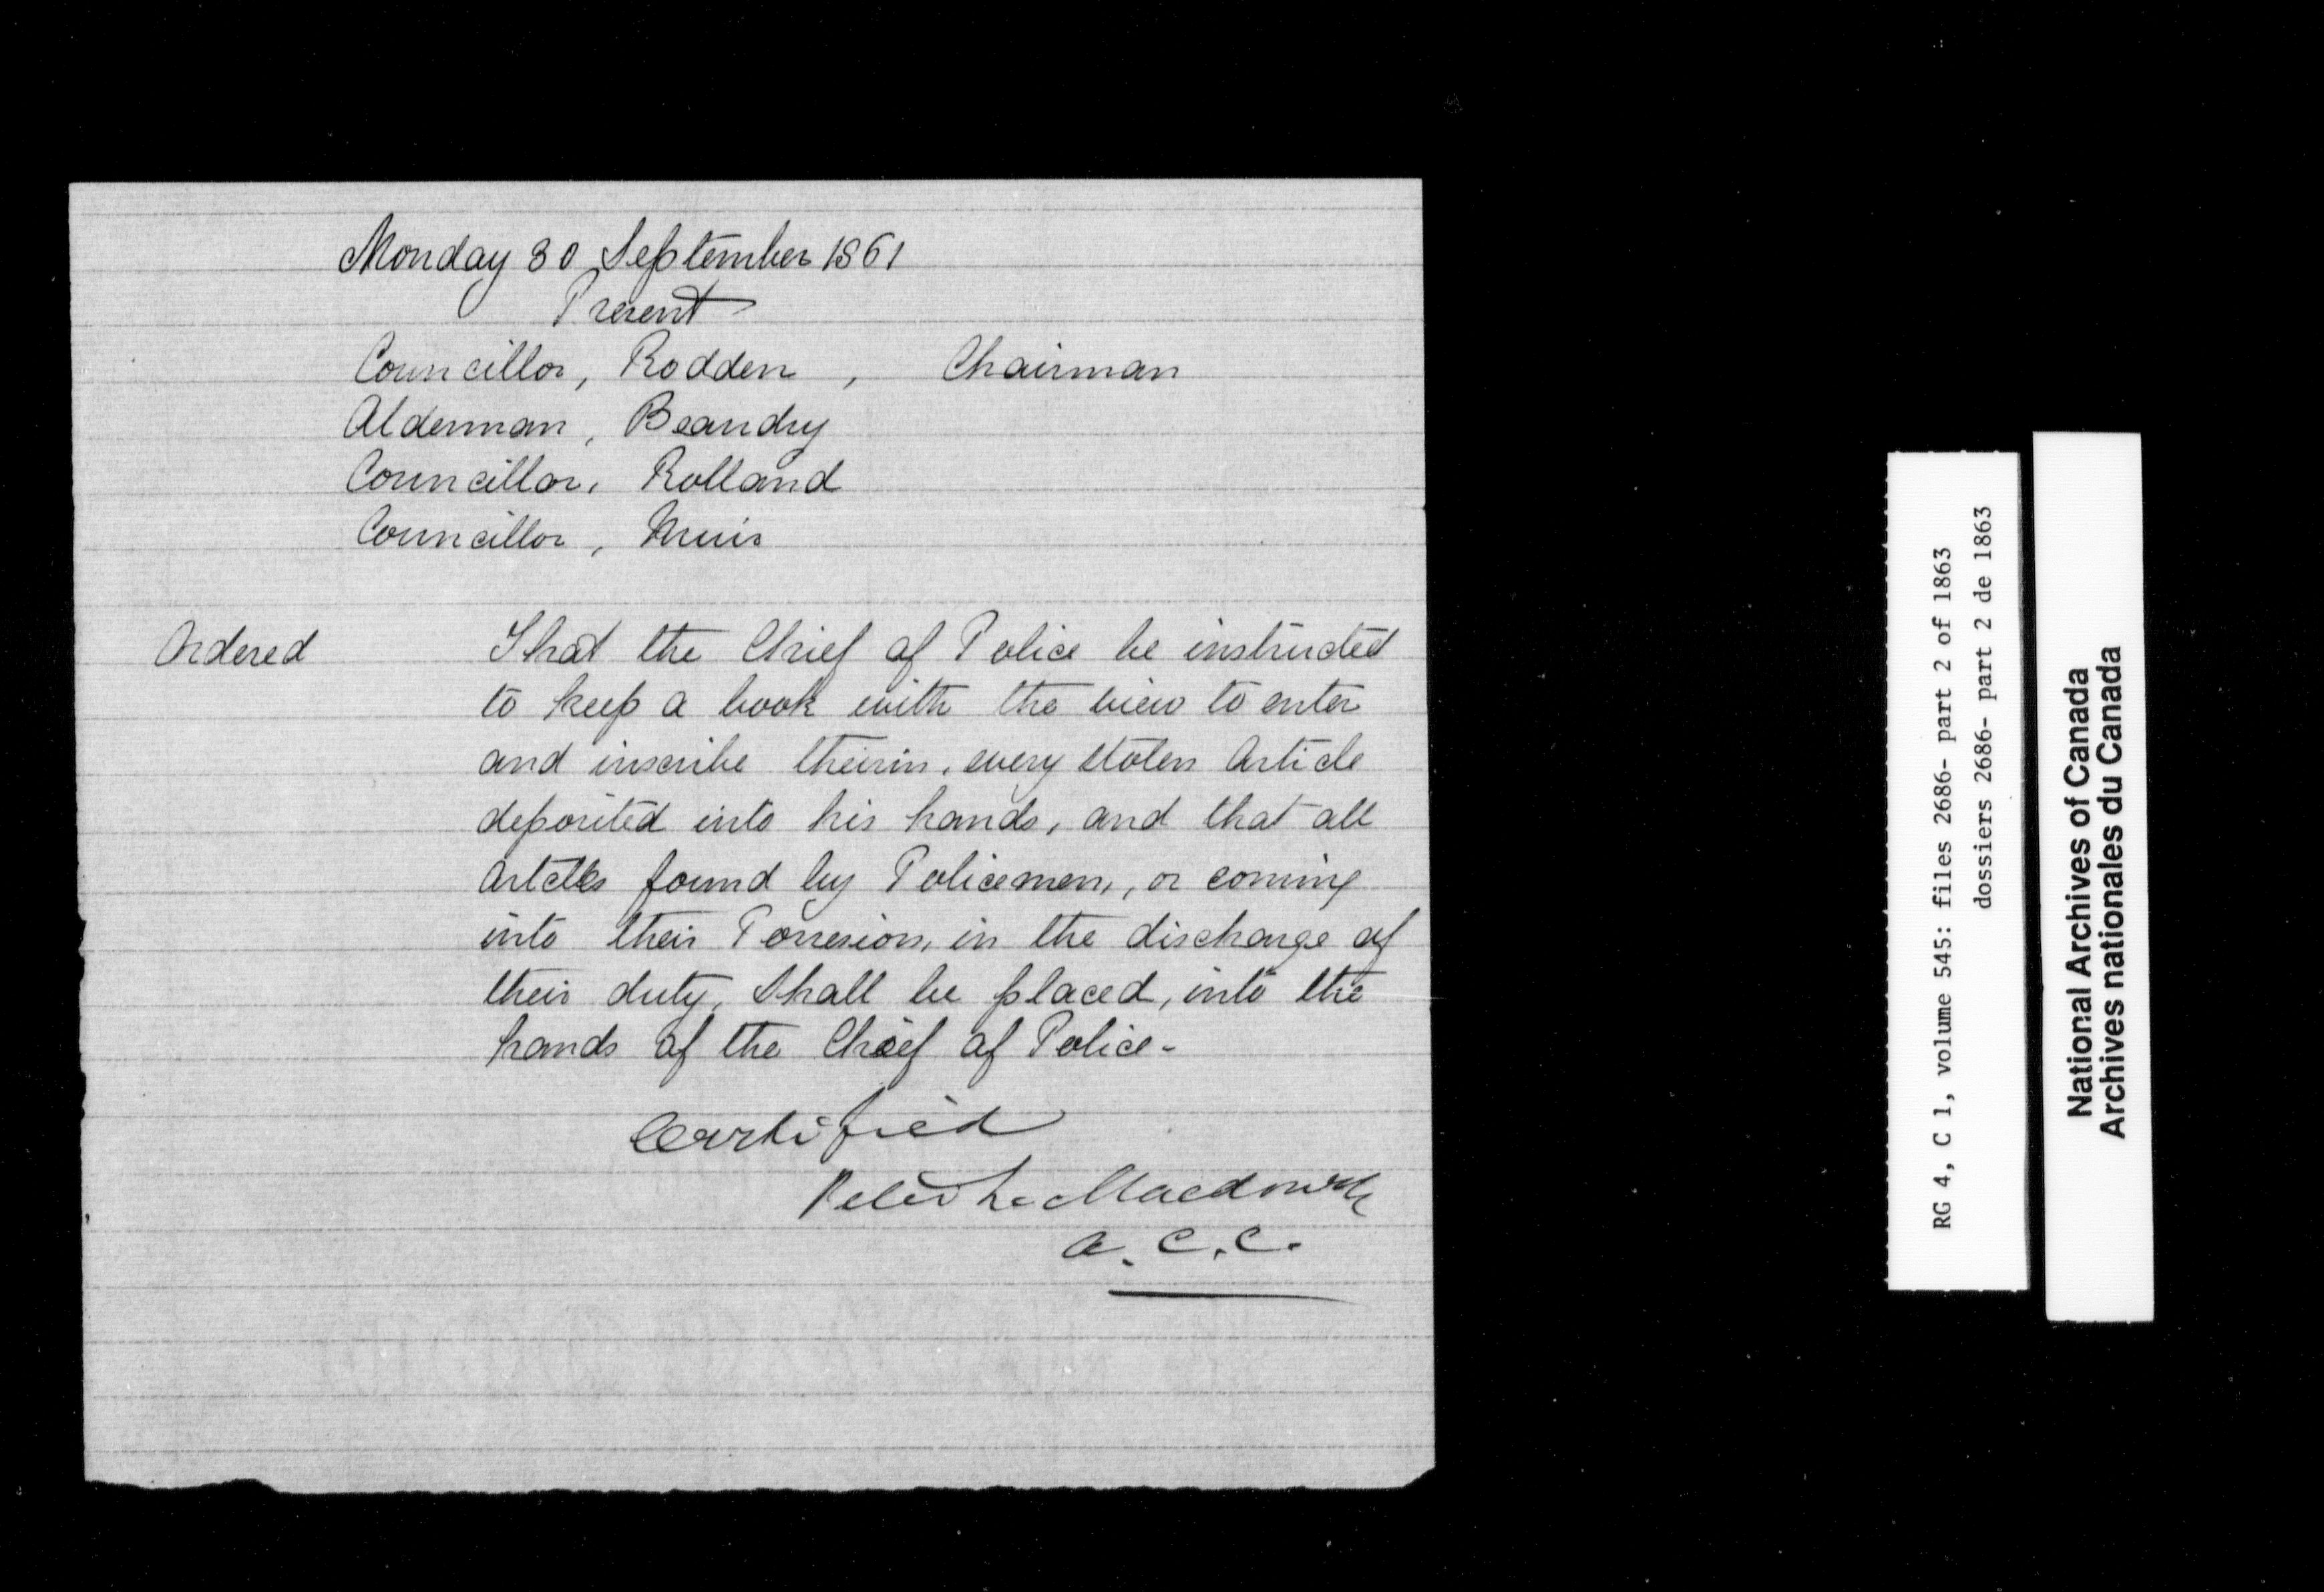 Monday 30 September 1861
Present
Councillor, Rodden, Chairman
Alderman, Beaudry
Councillor, Rolland
Councillor, Muir
Ordered That the Chief of Police be instructed
to keep a book with the view to enter
and inscribe therein, every stolen Article
deposited into his hands, and that all
Articles found by Policemen, or coming
into their Possession, in the discharge of
their duty, Shall be placed, into the
hands of the Chief of Police-
Certified
Peter L. Macdonell
A.C.C.
RG 4, C 1, volume 545: files 2686- part 2 of 1863
dossiers 2686- part 2 de 1863
National Archives of Canada
Archives nationales du Canada